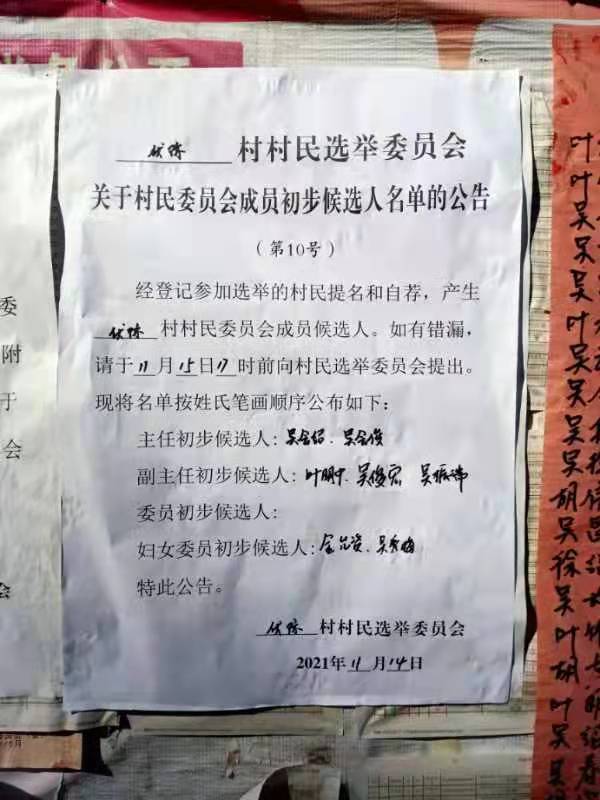 村村民选举委员会
关于村民委员会成员初步候选人名单的公告
（第10号）
经登记参加选举的村民提名和自荐，产生
村村民委员会成员候选人。如有错漏，
请于11月15日17时前向村民选举委员会提出。
现将名单按姓氏笔画顺序公布如下：
主任初步候选人：吴金绍、吴金俊
副主任初步候选人：叶明中、吴俊宏、吴振沛
委员初步候选人：
妇女委员初步候选人：金竺资、吴秀梅
特此公告。
村村民选举委员会
2021年11月14日
委
附
于
会
会
叶
叶
吴
吴
吴
叶
吴
吴
吴
吴
胡
吴
徐
吴
叶
胡
叶
吴
吴